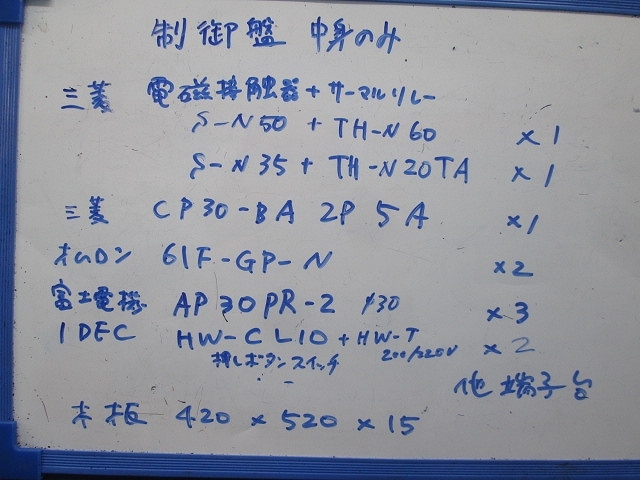 制御盤 中身のみ
三菱 電磁接触器+サーマルリレー
S-N50 + TH-N60 ×1
S-N35 + TH-N20TA ×1
三菱 CP30-BA 2P 5A ×1
オムロン 61F-GP-N ×2
富士電機 AP30PR-2 φ30 ×3
IDEC HW-CL10 + HW-T ×2
押しボタンスイッチ 200/220V
他端子台
木板 420 × 520 × 15